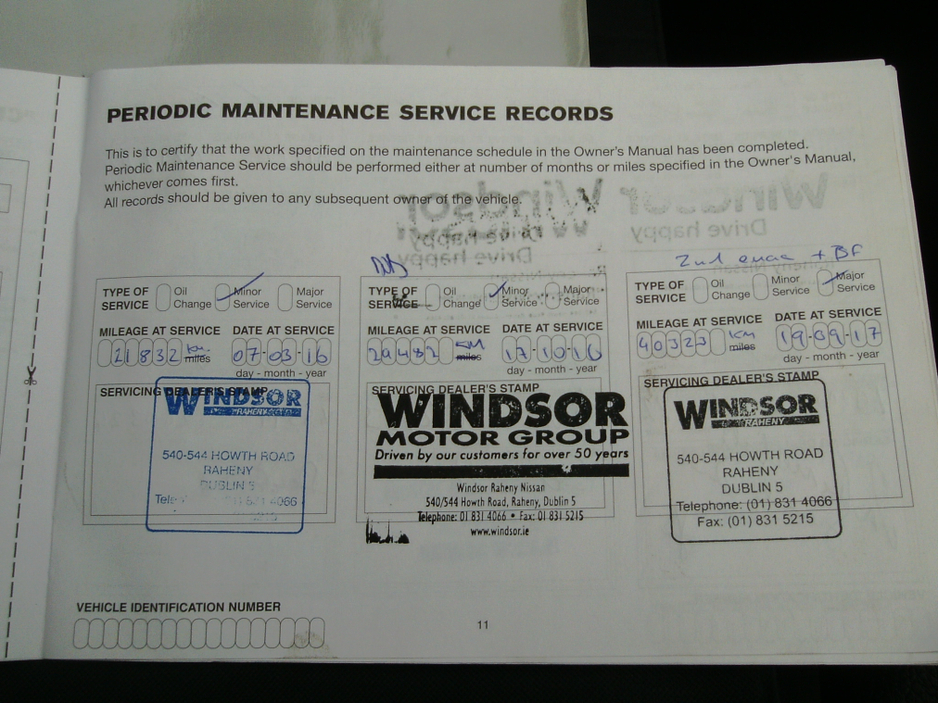 PERIODIC MAINTENANCE SERVICE RECORDS
This is to certify that the work specified on the maintenance schedule in the Owner's Manual has been completed.
Periodic Maintenance Service should be performed either at number of months or miles specified in the Owner's Manual,
whichever comes first.
All records should be given to any subsequent owner of the vehicle.
TYPE OF SERVICE Oil Change Minor Service Major Service
MILEAGE AT SERVICE DATE AT SERVICE
21832 km miles 07-03-16
day - month - year
SERVICING DEALER'S STAMP
WINDSOR
RAHENY
540-544 HOWTH ROAD
RAHENY
DUBLIN 5
4066
TYPE OF SERVICE Oil Change Minor Service Major Service
MILEAGE AT SERVICE DATE AT SERVICE
29482 KM miles 17-10-16
day - month - year
SERVICING DEALER'S STAMP
WINDSOR
MOTOR GROUP
Driven by our customers for over 50 years
Windsor Raheny Nissan
540/544 Howth Road, Raheny, Dublin 5
Telephone: 01 831 4066 • Fax: 01 831 5215
www.windsor.ie
+ BF
TYPE OF SERVICE Oil Change Minor Service Major Service
MILEAGE AT SERVICE DATE AT SERVICE
40323 KM miles 19-09-17
day - month - year
SERVICING DEALER'S STAMP
WINDSOR
RAHENY
540-544 HOWTH ROAD
RAHENY
DUBLIN 5
Telephone: (01) 831 4066
Fax: (01) 831 5215
VEHICLE IDENTIFICATION NUMBER
11